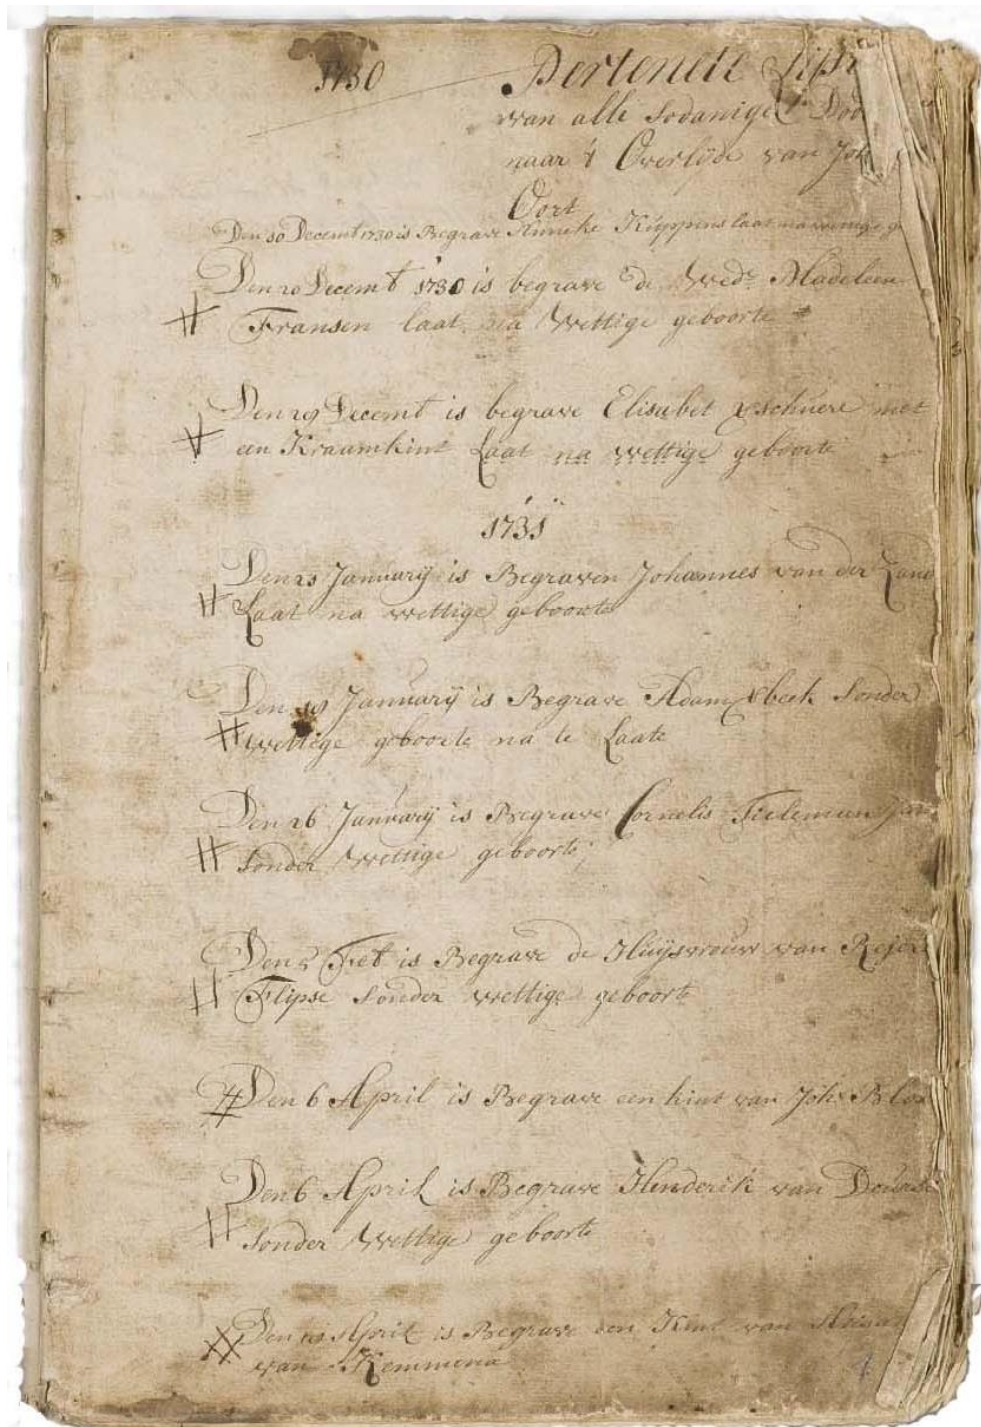 1730
Pertenete Lijst
van alle sodanige Doo
naar 't Overlijde van Joh
Oort
Den 10 Decemt 1730 is Begrave Anneke Kuppens laat na wettige g
Den 20 Decemt 1730 is begrave de Wed: Madeleen
Fransen laat na Wettige geboorte
Den 29 Decemt is begrave Elisabet met
een Kraamkint Laat na wettige geboorte
1731
Den 13 Januarij is Begraven Johannes van der Zand
Laat na wettige geboorte
Den 19 Januarij is Begrave Adam Sonder
wettige geboorte na te Laate
Den 26 Januarij is Begrave Cornelis Tieleman
Sonder Wettige geboorte;
Den 5 Feb is Begrave de Huijsvrouw van Rejer
Flipse Sonder wettige geboorte
Den 6 April is Begrave een kint van Joh: Blo
Den 6 April is Begrave Henderik van Deurs
Sonder Wettige geboorte
Den April is Begrave een Kint van
van Kemmena